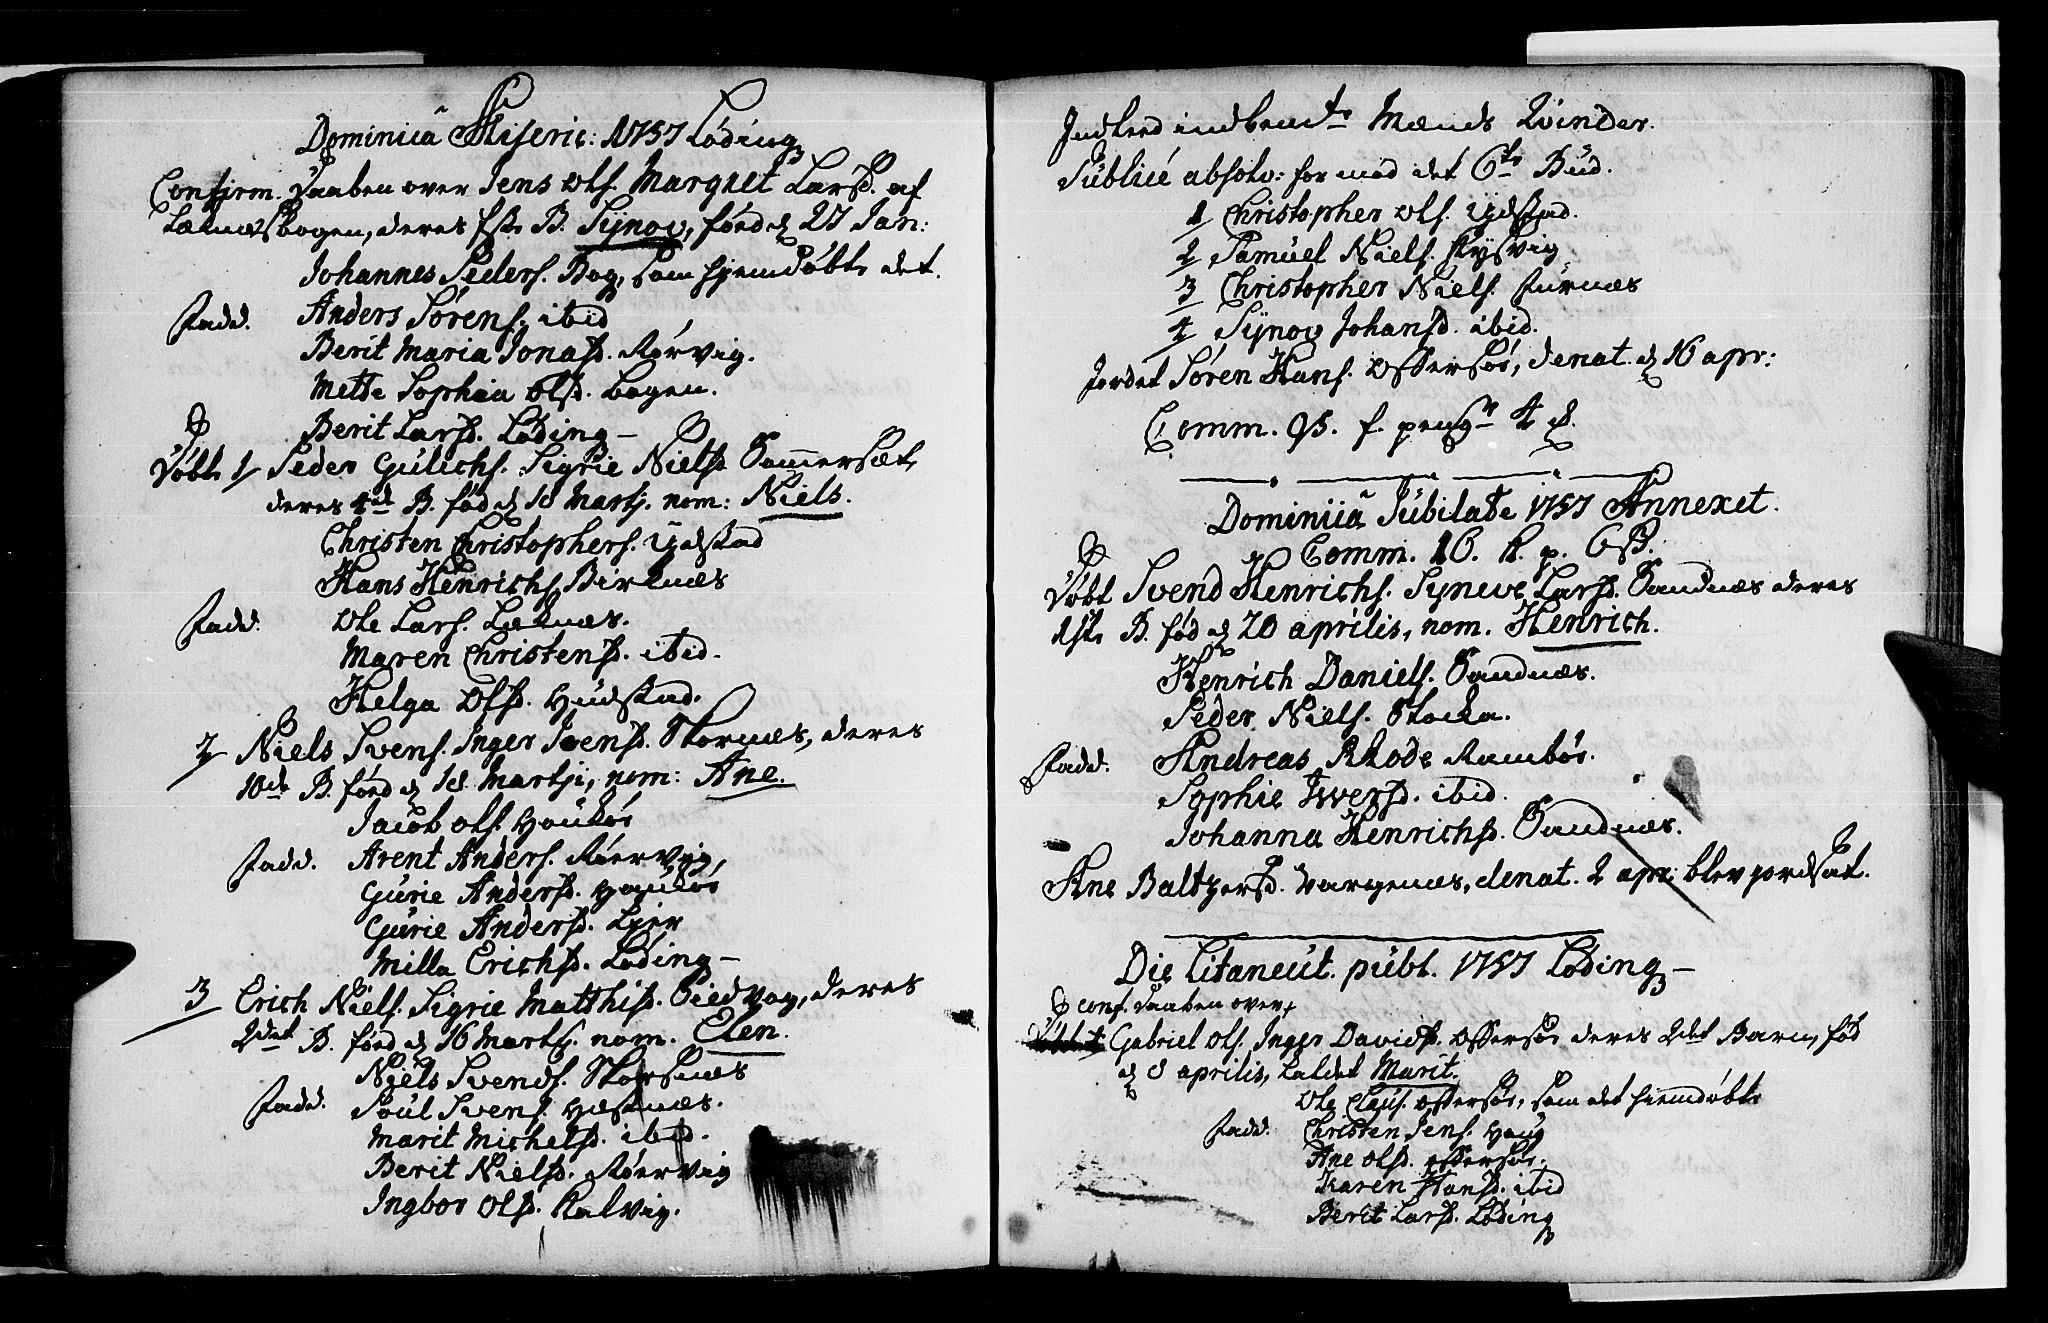 Dominicâ Miseric: 1757 Løding
Confirm. Daaben over Jens Ols. Margret Larsd. af
Læknesbogen, deres første B. Synov, førd d 27 Jan:
Johannes Peders. Bog, som hjemdøbte det.
Fadd. Anders Sørens. ibid
Berit Maria Jonasd. Rørvig.
Mette Sophia Olsd. Bogen.
Berit Larsd. Løding
Døbt 1/ Peder Gulichs. Sigrie Nielsd Sommersæt,
deres 4de B. fød d 18 Martj. nom: Niels.
Christen Christophers. Ydstad
Hans Henrichs. Birknæs
Fadd. Ole Lars. Læknæs.
Maren Christensd. ibid.
Helga Olsd. Hudstad.
2/ Niels Svens. Inger Svensd. Skornæs, deres
10de B. førd d 18 Martji, nom: Ane.
Jacob Ols. Haukøe
Fadd. Arent Anders. Røervig,
Gurie Andersd. Haukøe
Gurie Andersd. Lier
Milla Erichsd. Løding
3/ Erich Niels. Sigrie Matthisd. Piedvog, deres
2det B. førd d 16 Martj. nom. Elen.
Niels Svends. Skorsnæs
Fadd. Poul Svens. Hæstnæs.
Marit Michelsd. ibid.
Berit Nielsd. Røervig
Ingbor Olsd. Kalvig.
Indled indbemte Mænds Qvinder.
Publicè absolv: for mod det 6te Bud.
1/ Christopher Ols. Ydstad.
2/ Samuel Niels. Kysvig
3/ Christopher Niels. Furnæs
4/ Synov Johansd. ibid.
Jordet Søren Hans. Offersøe, denat. d 16 apr:
Comm. 95. f. peng 4
Dominicâ Jubilate 1757 Annexet.
Comm. 16. R. p. 6 ß.
Døbt Svend Henrichs. Syneve Larsd. Sandnæs deres
1ste B. fød d 20 aprilis, nom. Henrich.
Henrich Daniels. Sandnæs.
Peder Niels. Stocka.
Fadd. Andreas Rhode Rambøe.
Sophie Iwersd. ibid.
Johanna Henrichsd. Sandnæs.
Ane Baltzersd. Vargenæs, denat. 2 apr: blev jordsat.
Die Litaneut. publ. 1757 Løding
conf. Daaben over
Gabriel Ols. Inger Davidsd. Offersøe deres 2det Barn, fød
d 8 aprilis, kaldet Marit.
Ole Claus. Offersøe, som det hjemdøbte
Fadd. Christen Jens. Haug
Ane Olsd. Offersøe.
Karen Hansd. ibid
Berit Larsd. Løding